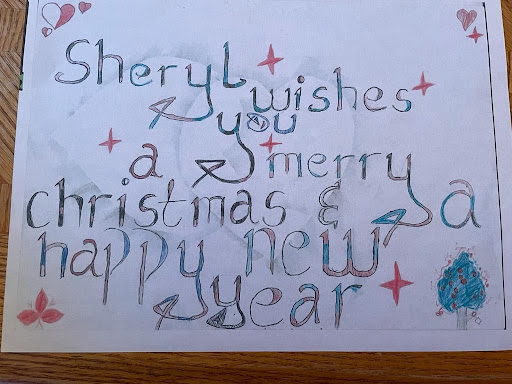 Sheryl wishes
you
a merry
christmas & a
happy new
year